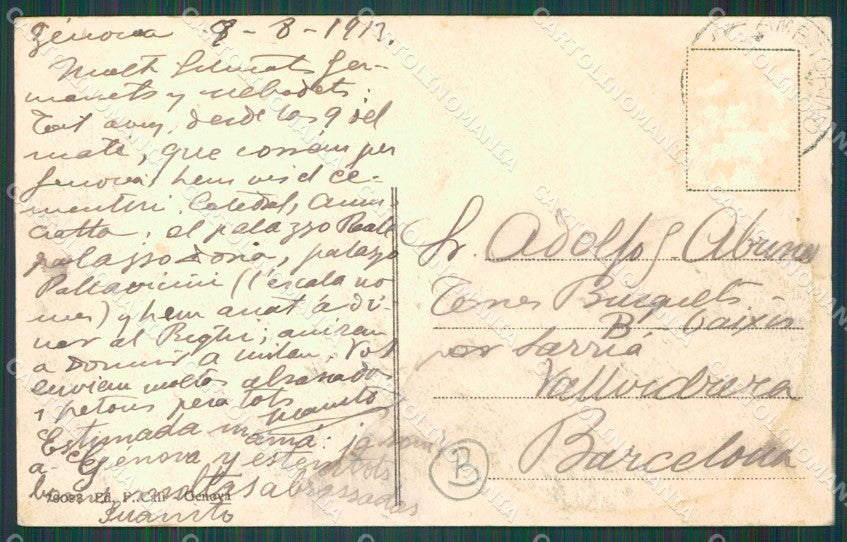 Génova 9-8-1913.
Molt estimats ger-
manets y nebodets:
Tot avuy, desde las 9 del
matí, que corrém per
Genova, hem vis el ce-
mentiri, Catedral, Anun-
ciatta, el palazzo Reale
palazzo Doria, palazo
Pallavicini (l'escala no
mes) y hem anat á di-
nar al Righi; anirem
a dormir a Milan. Vos
enviem moltes abrasadas
i petons pera tots
Juanito
Estimada mamá: ja som
a Génova y estem tots
bons. Moltas abrassadas
Juanito
Sr. Adolfo G. Abrines
Torres Busquets
B - baixis
por Sarriá
Vallvidrera
Barcelona
B
Ed. F. Genova
CARTOLINOMANIA